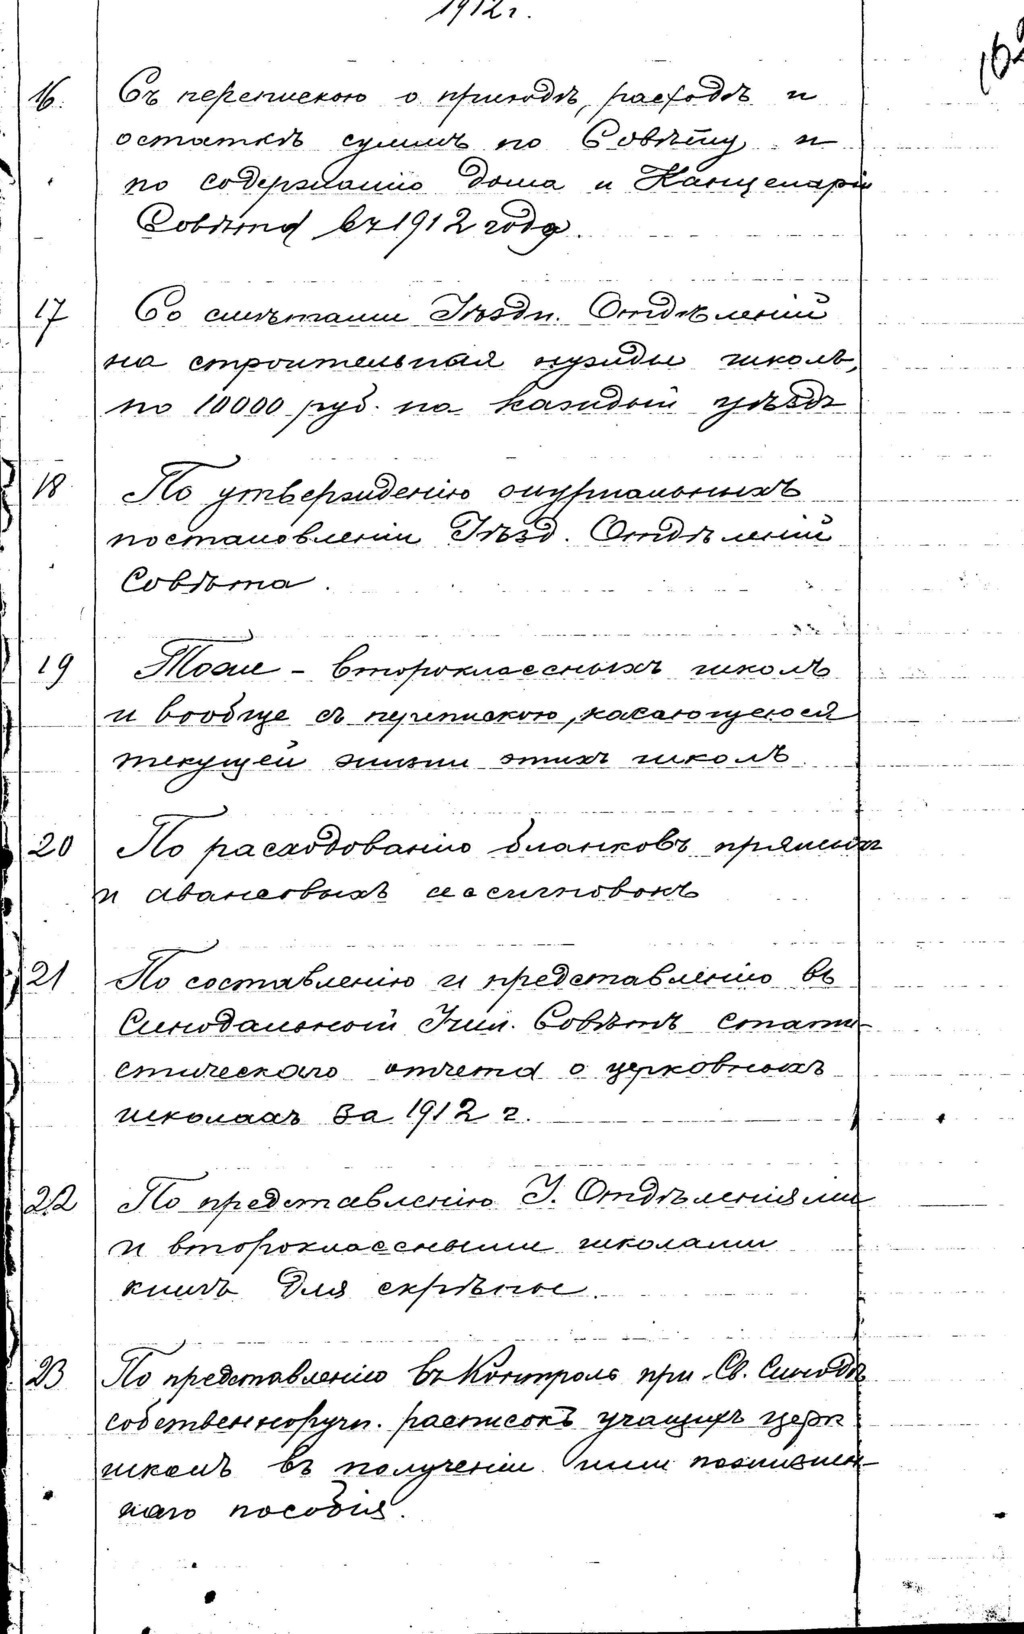 1912 г.
16. Съ перепискою о приходѣ, расходѣ и
остаткѣ суммъ по Совѣту и
по содержанію дома и Канцеляріи
Совѣта въ 1912 году.
17 Со смѣтами Уѣздн. Отдѣленій
на строительныя нужды школъ,
по 10000 руб. на каждый уѣздъ
18 По утвержденію журнальныхъ
постановленій Уѣзд. Отдѣленій
Совѣта.
19 Тоже - второклассныхъ школъ
и вообще съ перепискою, касающеюся
текущей жизни этихъ школъ
20 По расходованію бланковъ прямыхъ
и авансовыхъ ассигновокъ
21 По составленію и представленію въ
Синодальный Учил. Совѣтъ стати-
стическаго отчета о церковныхъ
школахъ за 1912 г.
22 По представленію У. Отдѣленіями
и второклассными школами
книгъ для скрѣпы.
23 По представленію въ Контроль при Св. Синодѣ
собственноручн. расписокъ учащихъ церк
школъ въ полученіи ими
пособія.